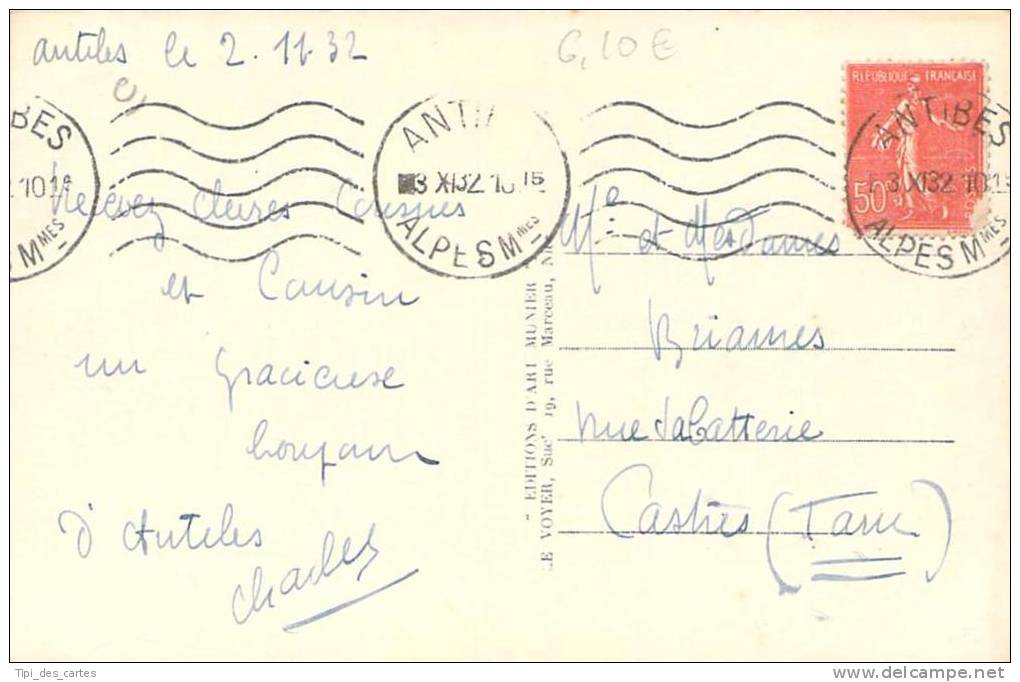 Antibes le 2.11.32
6,10€
RÉPUBLIQUE FRANÇAISE
50
ANTIBES
3 XI 32 10 15
ALPES Mmes
BES
10 15
S Mmes
ANTI
3 XI 32 10 15
ALPES Mmes
Recevez chères Cousines
et Cousin
un gracieuse
bonjour
d'Antibes
Charles
" EDITIONS D'ART MUNIER
LE VOYER, Sucr 19, rue Marceau, NI
Me et Mesdames
Briannes
rue Sabatterie
Castres (Tarn)
Tipi_des_cartes
www.delcampe.net